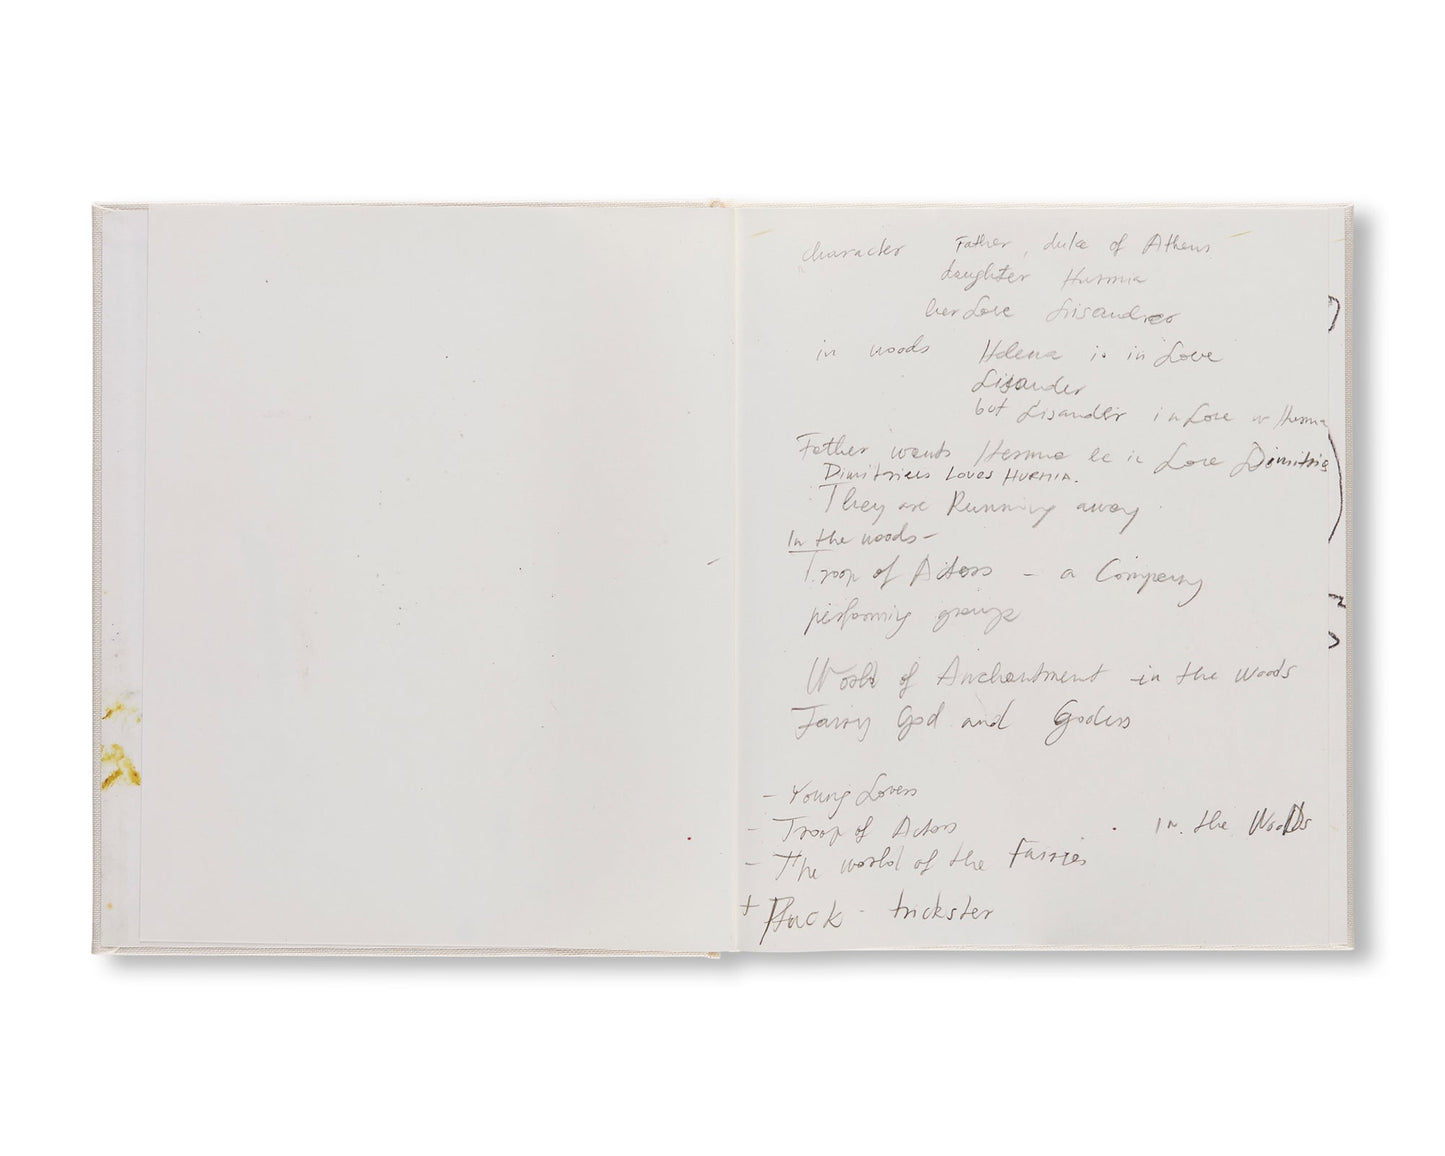 character Father, duke of Athens
daughter Hurmia
her Love Lisandreo
in woods Helena is in Love
Lisander
but Lisander in Love w Hurmia
Father wants Hermia be in Love Dimitris
Dimitrieus Loves HURMIA.
They are Running away
In the woods -
Troop of Actors - a Company
performing groupe
World of Anchantment - in the woods
Fairry God and Godess
- Young Lovers
- Troop of Actors . In. the Woods
- The world of the Fairries
+ Puck - trickster